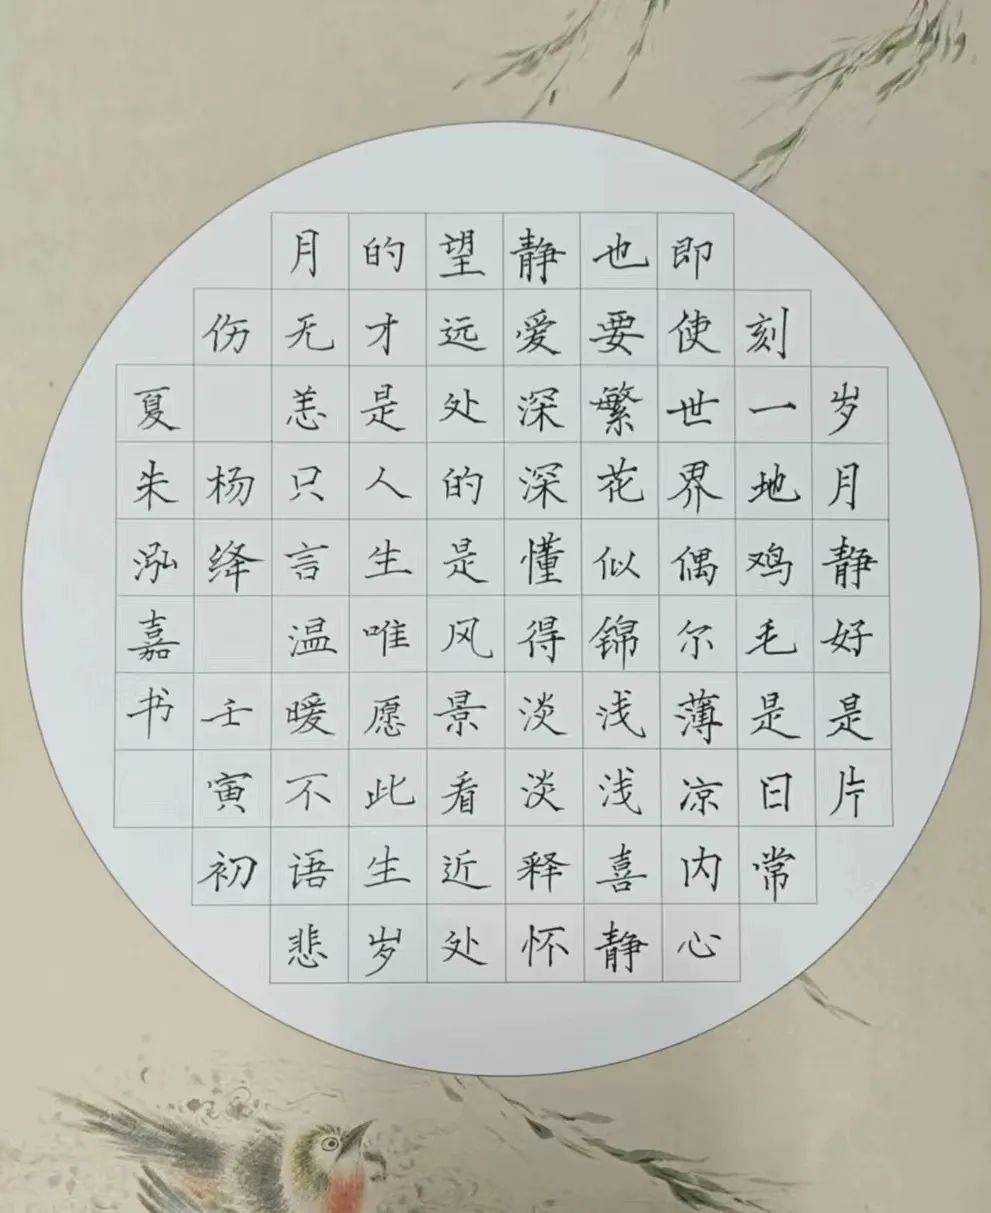 岁月静好是片
刻一地鸡毛是日常
即使世界偶尔薄凉内心
也要繁花似锦浅浅喜静
静爱深深懂得淡淡释怀
望远处的是风景看近处
的才是人生唯愿此生岁
月无恙只言温暖不语悲
伤 杨绛 壬寅初
夏朱泓嘉书